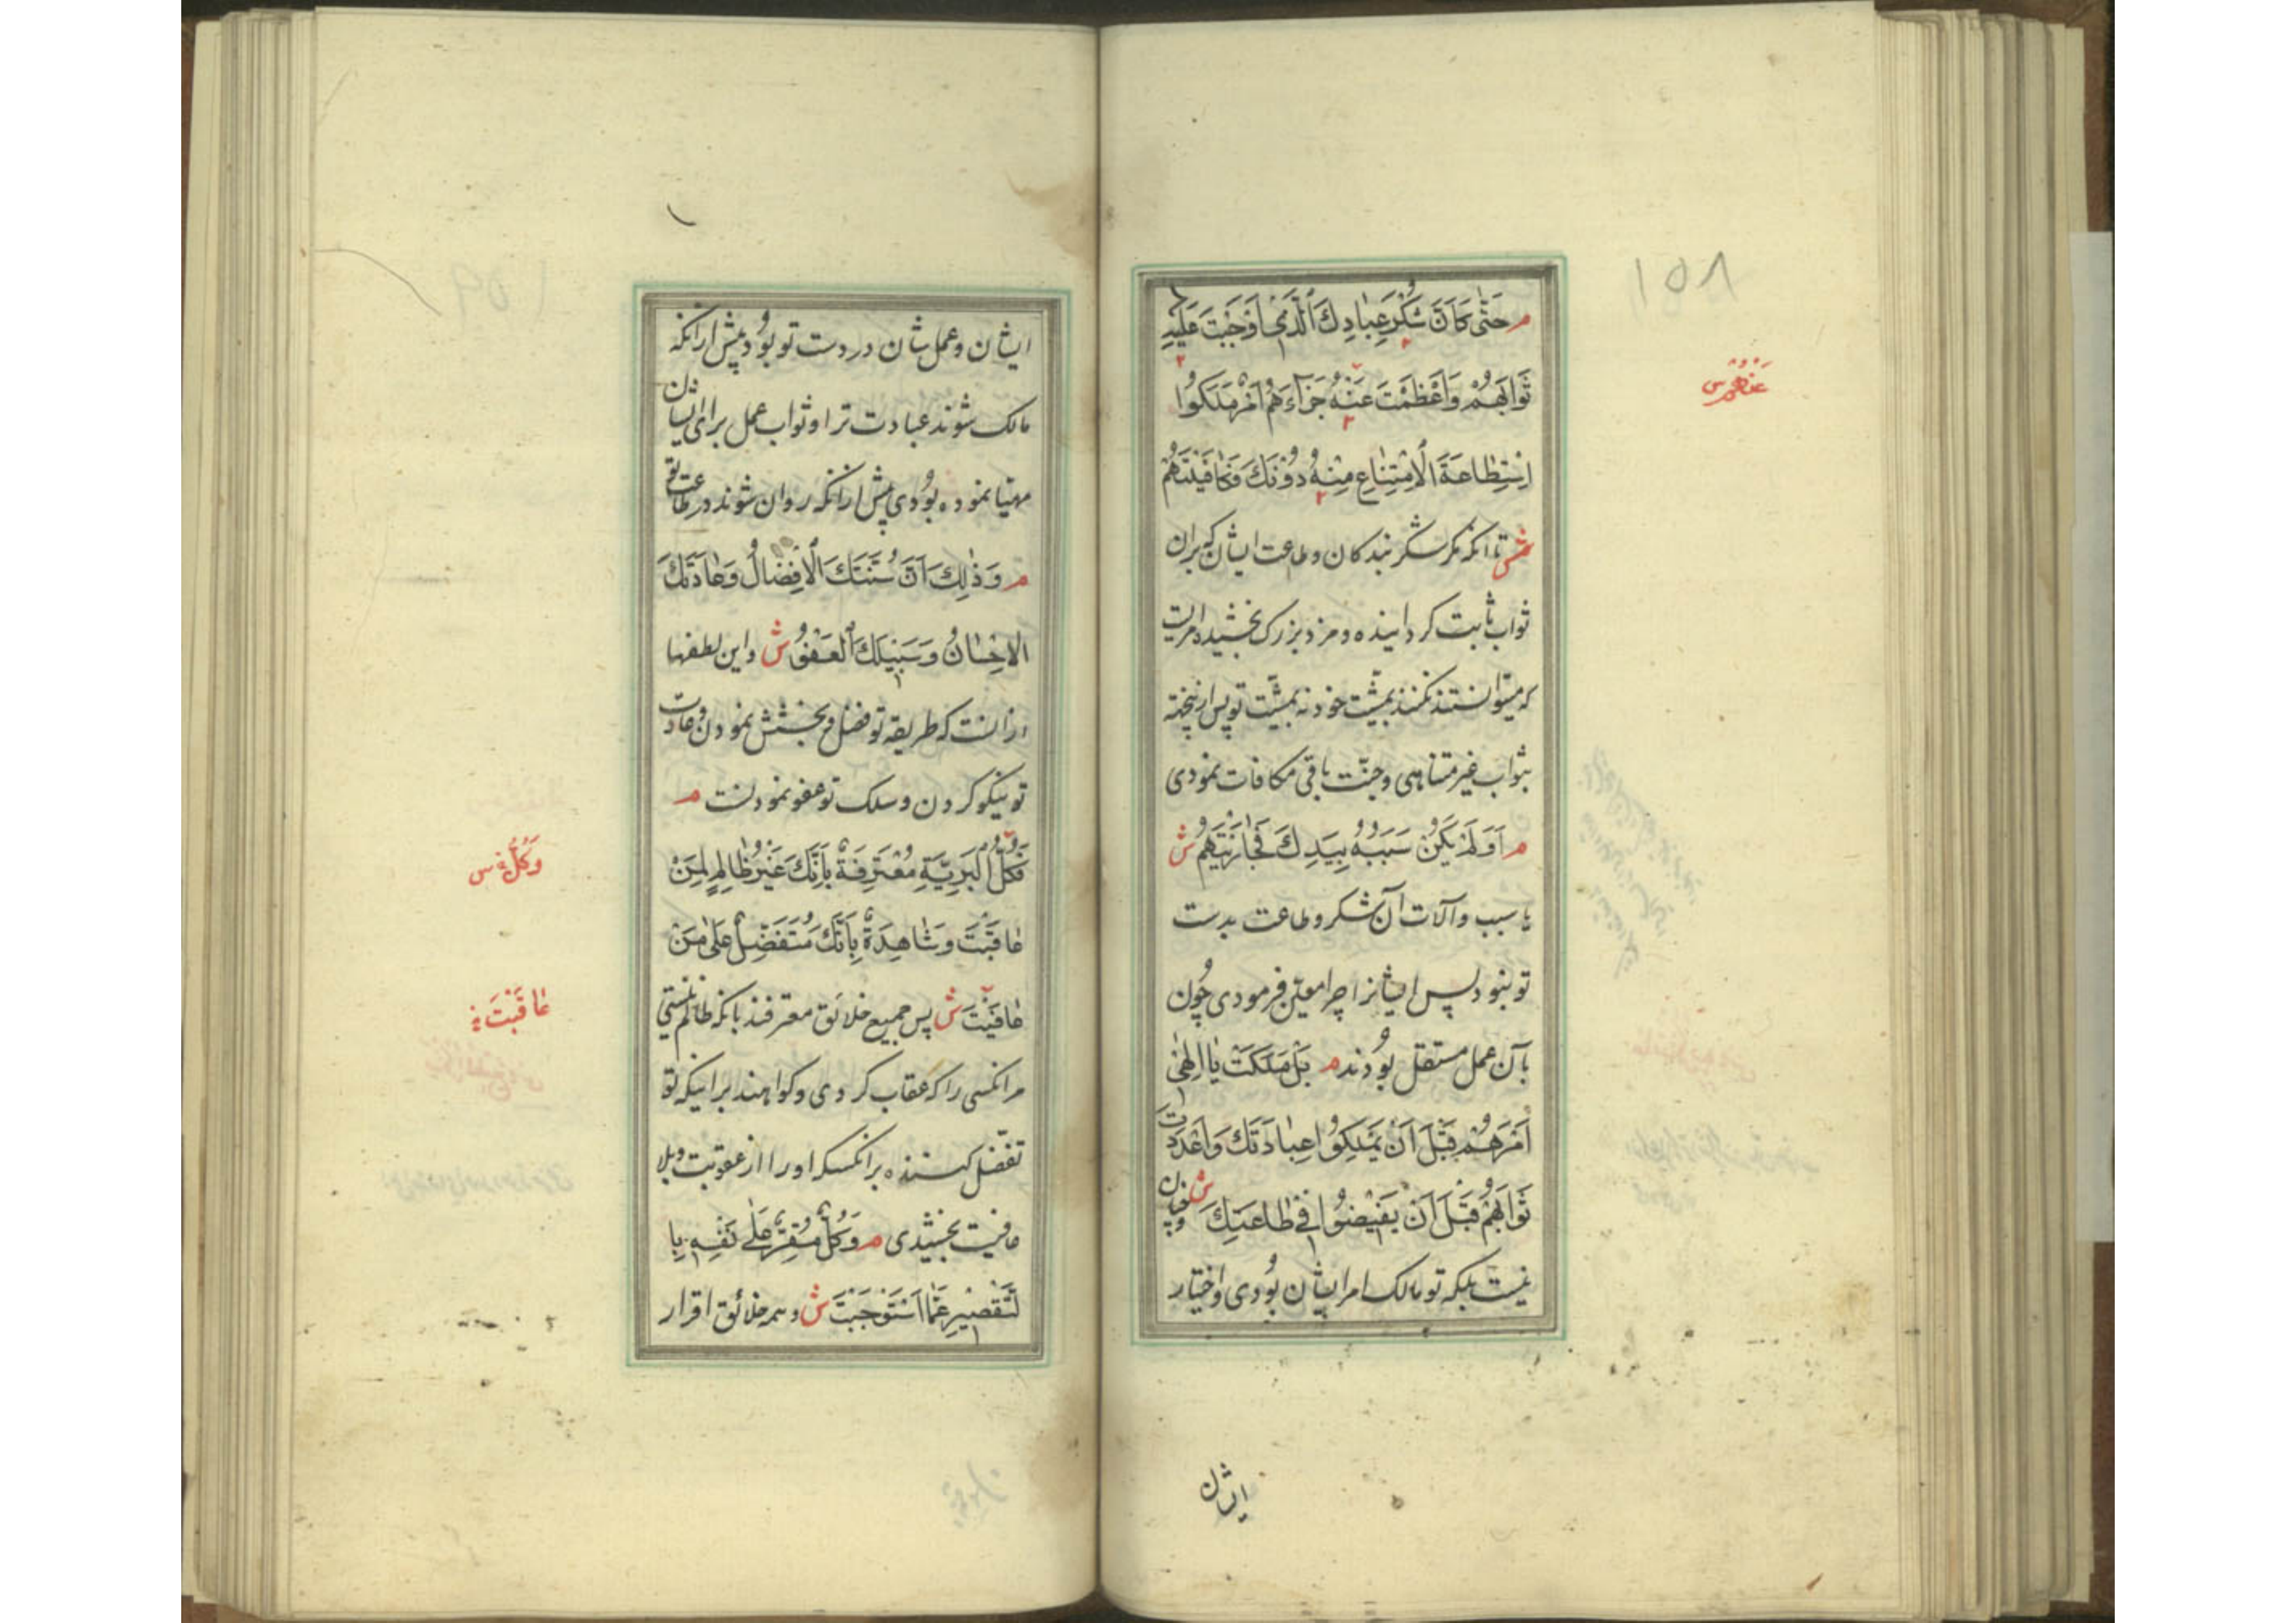 ١٥٨
م حَتّٰى كَاَنَّ شُكْرَ عِبَادِكَ الَّذٖى اَوْجَبْتَ عَلَيْهِ
ثَوَابَهُمْ وَاَعْظَمْتَ عَنْهُ جَزَآءَهُمْ اَمْرٌ مَلَكُوا
عَنْهُمْ س
اِسْتِطَاعَةَ الْاِمْتِنَاعِ مِنْهُ دُوْنَكَ فَكَافَيْتَهُمْ
ش تا آنکه مکر شکر بندکان و طاعت ایشان که بران
ثواب ثابت کردانیده و مزد بزرک بخشیده امریست
که میتوانستند نکنند بمشیّت خود نه بمشیّت تو پس ازینجهة
بثواب غیر متناهی و جنّت باقی مکافات نمودی
م اَوَلَمْ يَكُنْ سَبَبُهُ بِيَدِكَ فَجَازَيْتَهُمْ ش
یا سبب و آلات آن شکر و طاعت بدست
تو نبود پس ایشانرا چرا معیّن فرمودی چُون
بآن عمل مستقل بُودند م بَلْ مَلَكْتَ يَا اِلٰهٖى
اَمْرَهُمْ قَبْلَ اَنْ يَمْلِكُوْا عِبَادَتَكَ وَاَعْدَدْتَ
ثَوَابَهُمْ قَبْلَ اَنْ يُفِيْضُوْا فِى طَاعَتِكَ ش و چنان
نیست بلکه تو مالک امر ایشان بُودی و اختیار
ایشان
ایشان و عمل شان در دست تو بُود پیش ازانکه
مالک شوند عبادت ترا و ثواب عمل برای ایشان
مهیّا نموده بُودی پیش ازانکه روان شوند در طاعت تو
م وَذٰلِكَ اَنَّ سُنَّتَكَ الْاِفْضَالُ وَعَادَتَكَ
الْاِحْسَانُ وَسَبِيْلَكَ الْعَفْوُ ش و این لطفها
ازانست که طریقه تو فضل و بخشش نمودن و عادت
تو نیکو کردن و مسلک تو عفو نمودنست م
فَكُلُّ الْبَرِيَّةِ مُعْتَرِفَةٌ بِاَنَّكَ غَيْرُ ظَالِمٍ لِمَنْ
وَكُلُّ س
عَاقَبْتَ وَشَاهِدَةٌ بِاَنَّكَ مُتَفَضِّلٌ عَلٰى مَنْ
عَافَيْتَ ش پس جمیع خلائق معترفند بانکه ظالم نیستی
عَاقَبْتَ
مر انکسی را که عقاب کردی و کواهند برانیکه تو
تفضّل کننده بر انکسکه اورا از عقوبت و بلا
عافیت بخشیدی م وَكُلٌّ مُقِرٌّ عَلٰى نَفْسِهِ بِا
لتَّقْصِيْرِ عَمَّا اسْتَوْجَبْتَ ش و همه خلائق اقرار